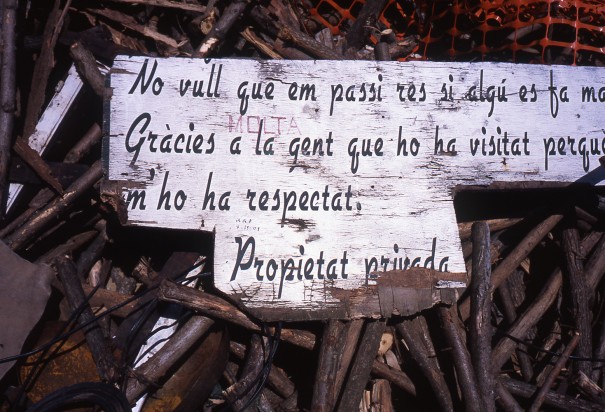 No vull que em passi res si algú es fa ma
Gràcies a la gent que ho ha visitat perquè
MOLTA
m'ho ha respectat.
Propietat privada